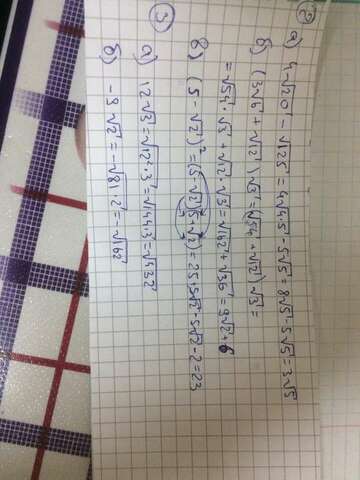 2
а) 4√20 - √125 = 4√4·5 - 5√5 = 8√5 - 5√5 = 3√5
б) (3√6 + √12)√3 = (√54 + √12)√3 =
= √54·√3 + √12·√3 = √162 + √36 = 9√2 + 6
в) (5 - √2)² = (5 - √2)(5 + √2) = 25 + 5√2 - 5√2 - 2 = 23
3
а) 12√3 = √12²·3 = √144·3 = √432
б) -9√2 = -√81·2 = -√162